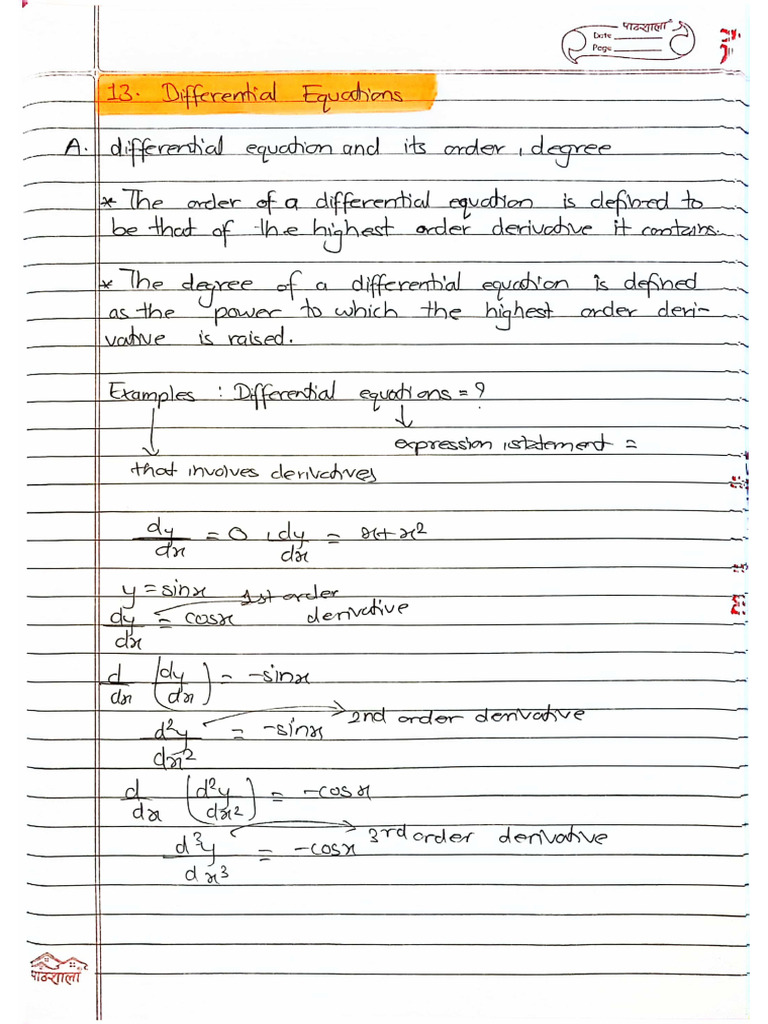 पाठशाला
Date
Page
13. Differential Equations
A. differential equation and its order, degree
* The order of a differential equation is defined to
be that of the highest order derivative it contains.
* The degree of a differential equation is defined
as the power to which the highest order deri-
vative is raised.
Examples : Differential equations = ?
expression / statement =
that involves derivatives
dy/dx = 0 , dy/dx = x+x²
y = sinx
1st order
dy/dx = cosx derivative
d/dx (dy/dx) = -sinx
d²y/dx² = -sinx 2nd order derivative
d/dx (d²y/dx²) = -cosx
d³y/dx³ = -cosx 3rd order derivative
पाठशाला